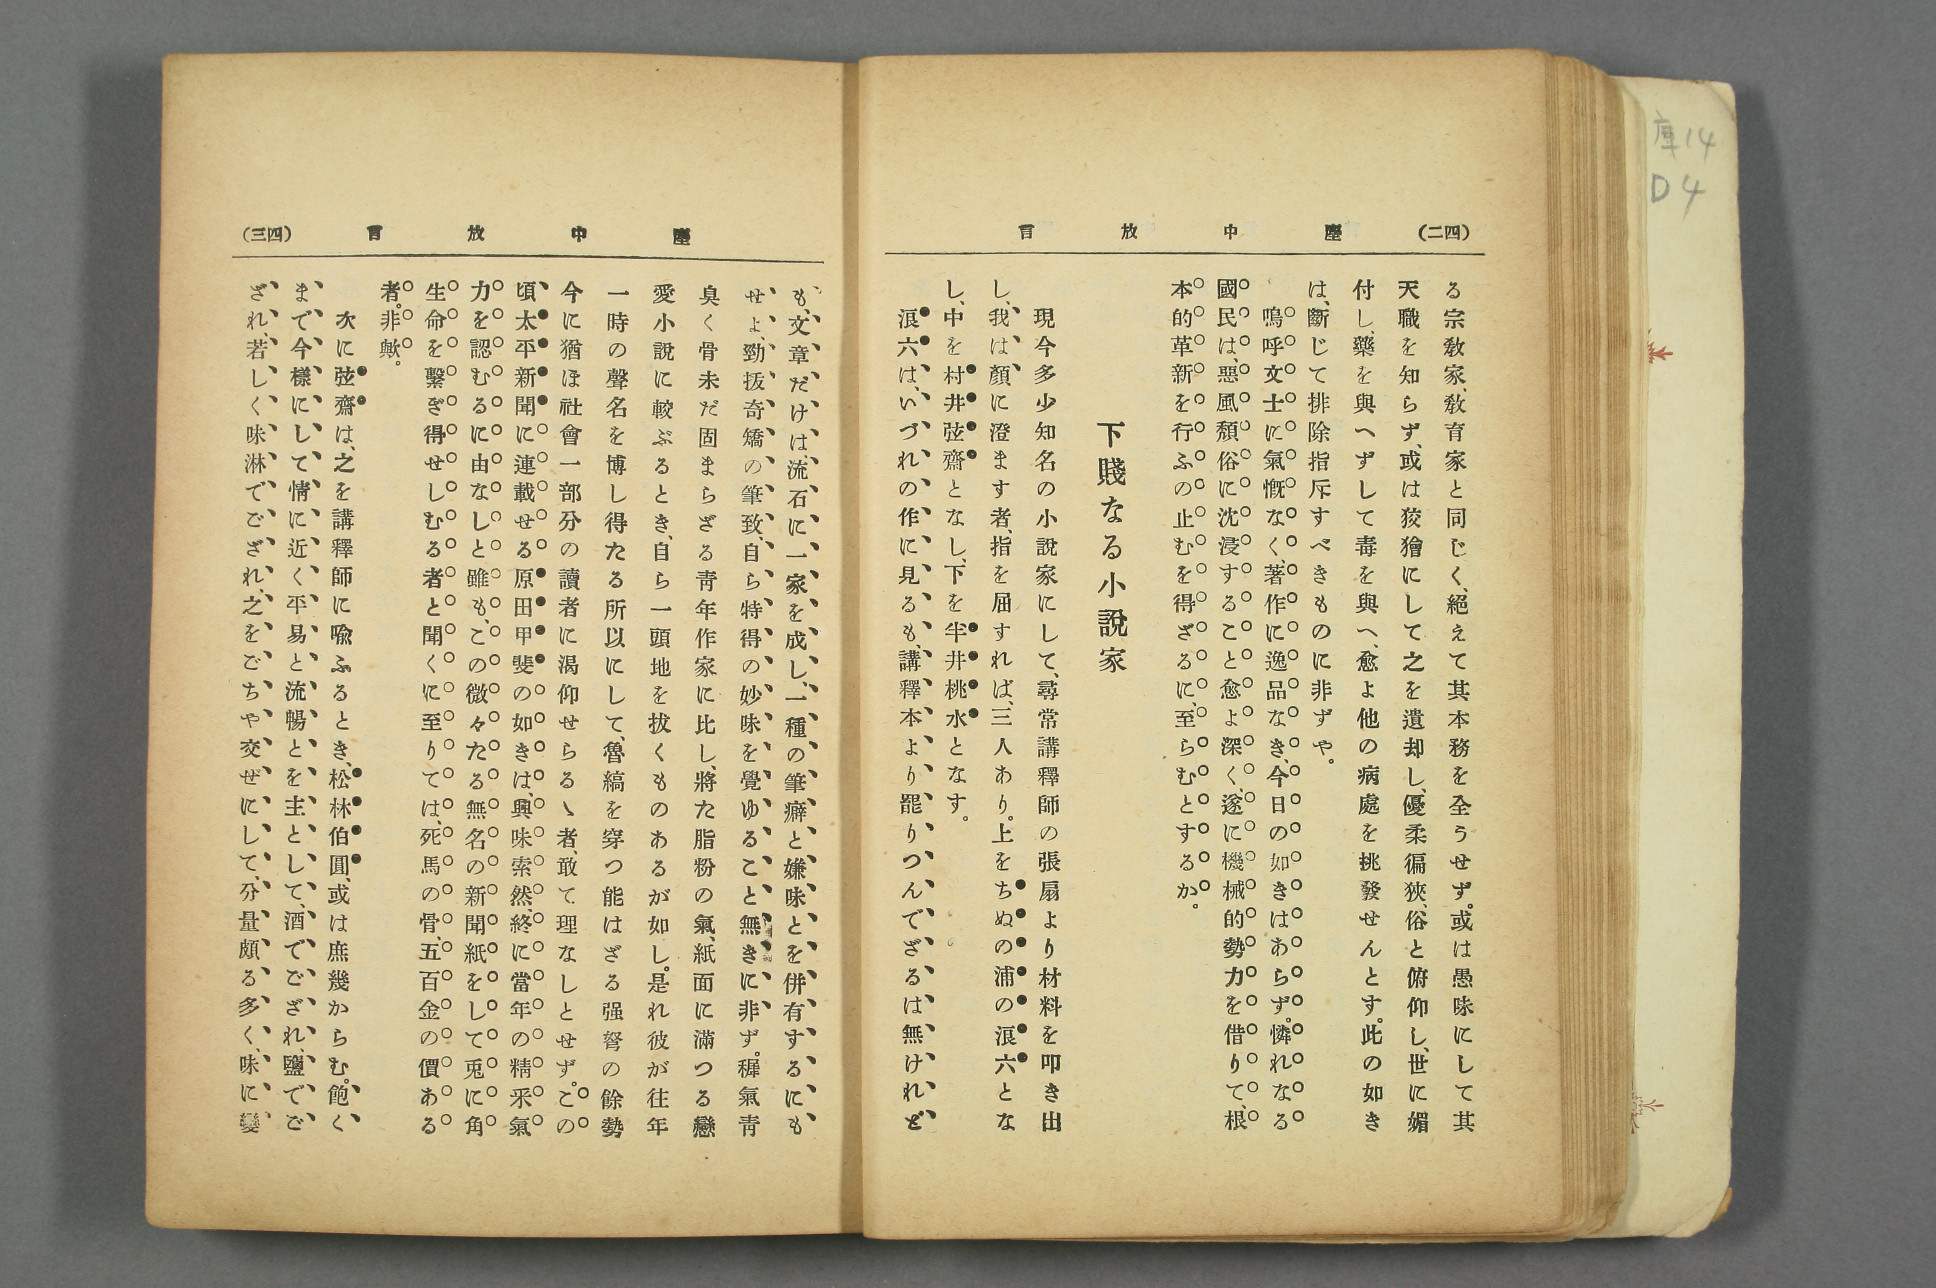 庫14
D4
(四二)　塵中放言
る宗教家、教育家と同じく、絕えて其本務を全うせず。或は愚昧にして其
天職を知らず、或は狡獪にして之を遺却し、優柔偏狹、俗と俯仰し、世に媚
付し、藥を與へずして毒を與へ、愈よ他の病處を挑發せんとす。此の如き
は、斷じて排除指斥すべきものに非ずや。
嗚呼文士に氣慨なく、著作に逸品なき、今日の如きはあらず。憐れなる
國民は、惡風頽俗に沈浸すること愈よ深く、遂に機械的勢力を借りて、根
本的革新を行ふの止むを得ざるに、至らむとするか。
下賤なる小說家
現今多少知名の小說家にして、尋常講釋師の張扇より材料を叩き出
し、我は顏に澄ます者、指を屈すれば、三人あり。上をちぬの浦の浪六とな
し、中を村井弦齋となし、下を半井桃水となす。
浪六は、いづれの作に見るも、講釋本より罷りつんでざるは無けれど
(四三)　塵中放言
も、文章だけは、流石に一家を成し、一種の筆癖と嫌味とを併有するにも
せよ、勁拔奇矯の筆致、自ら特得の妙味を覺ゆること無きに非ず。穉氣靑
臭く骨未だ固まらざる靑年作家に比し、將た脂粉の氣、紙面に滿つる戀
愛小說に較ぶるとき、自ら一頭地を拔くものあるが如し。是れ彼が往年
一時の聲名を博し得たる所以にして、魯縞を穿つ能はざる强弩の餘勢
今に猶ほ社會一部分の讀者に渴仰せらるゝ者、敢て理なしとせず。この
頃太平新聞に連載せる原田甲斐の如きは、興味索然、終に當年の精釆氣
力を認むるに由なしと雖も、この微々たる無名の新聞紙をして兎に角
生命を繫ぎ得せしむる者と聞くに至りては、死馬の骨、五百金の價ある
者。非歟。
次に弦齋は、之を講釋師に喩ふるとき、松林伯圓、或は庶幾からむ。飽く
まで今樣にして情に近く平易と流暢とを主として、酒でござれ、鹽でご
ざれ、若しく味淋でござれ、之をごちや交ぜにして、分量頗る多く、味に變